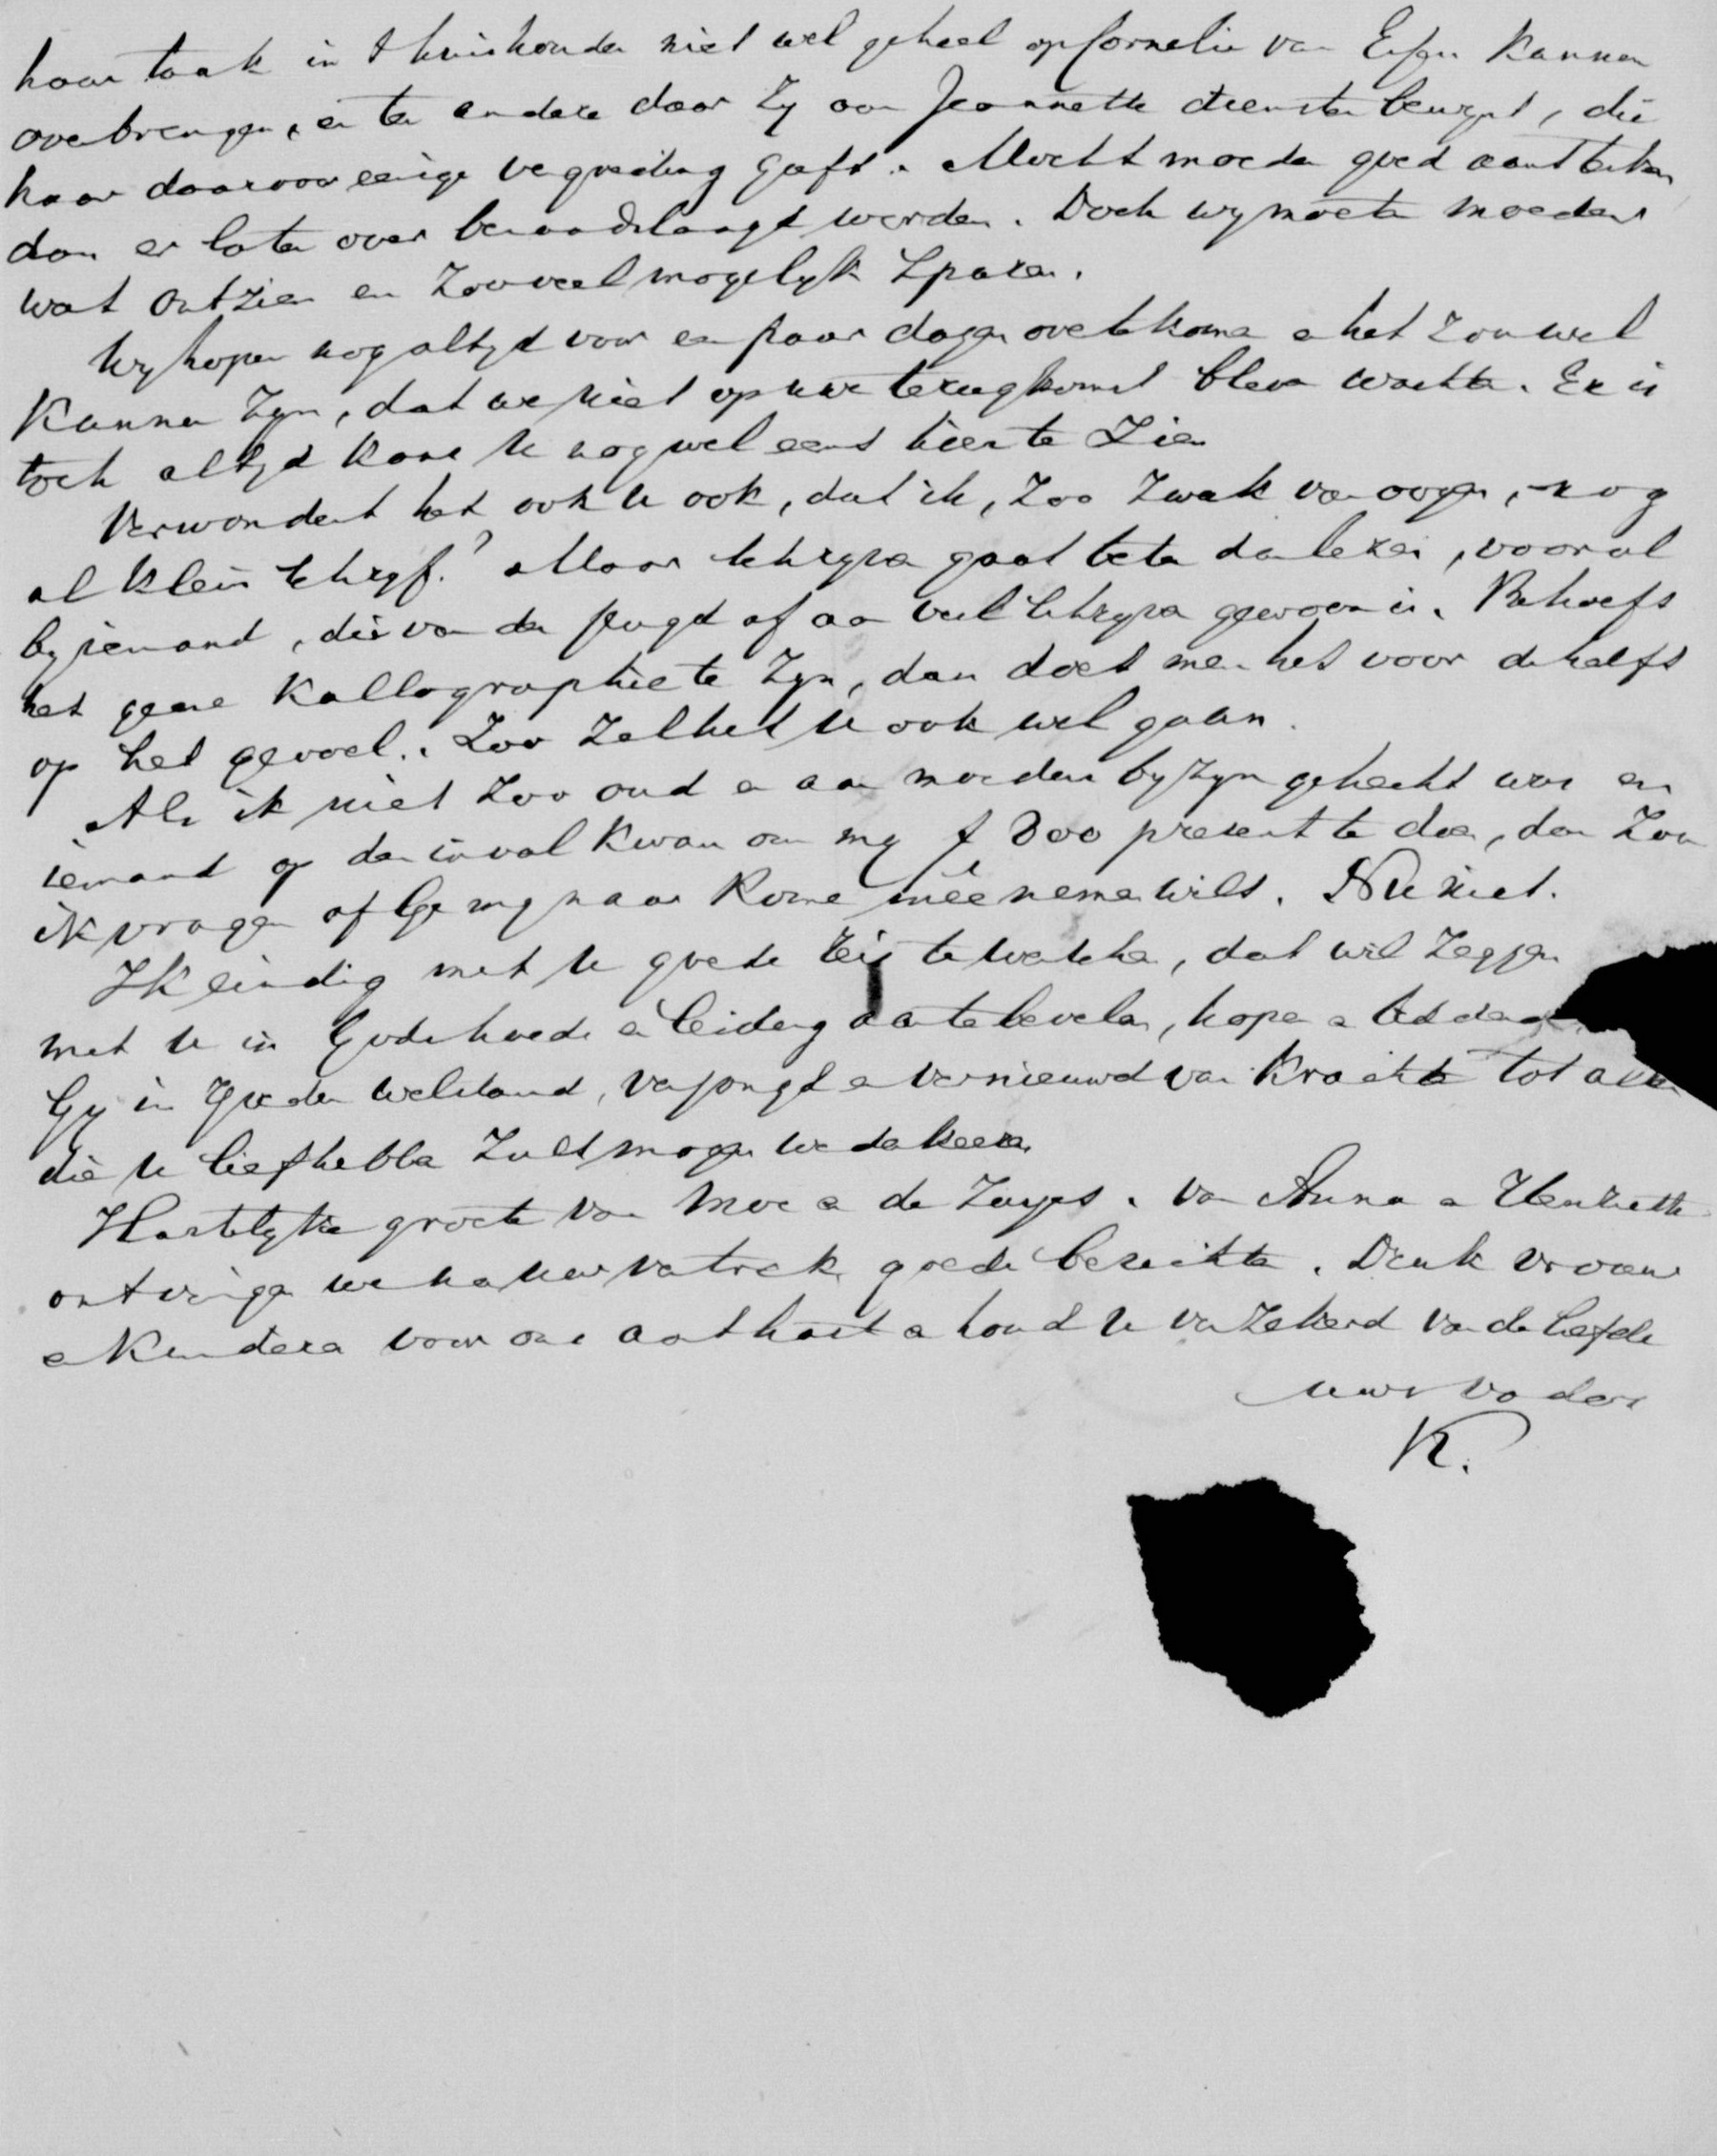 haar taak in 't huishouden niet wel geheel op Cornelie van Erpen kunnen
overbrengen, en ten andere door zy aan Jeannette diensten bewyst, die
haar daarvoor eenige vergoeding geeft. Mocht moeder goed aansterken
dan er later over beraadslaagd worden. Doch wy moeten moeders
wat ontzien en zooveel mogelyk sparen.
Wy hopen nog altyd voor een paar dagen over te komen en het zou wel
kunnen zyn, dat we niet op uwe terugkomst bleven wachten. Er is
toch altyd kans U nog wel eens hier te zien
Verwondert het ook U ook, dat ik, zoo zwak van oogen, nog
al klein schryf? Maar schryven gaat beter dan lezen, vooral
by iemand, die van der jeugd af aan veel schryven gewoon is. Behoeft
het geene kallographie te zyn, dan doet men het voor de helft
op het gevoel. Zoo zal het U ook wel gaan.
Als ik niet zoo oud en aan moeders byzyn gehecht was en
iemand op den inval kwam om my f 800 present te doen, dan zou
ik vragen of Ge my naar Rome mêe nemen wilt. Nu niet.
Ik eindig met U goede reis te wenschen, dat wil zeggen
met U in Gods hoede en leiding aan te bevelen, hopen en bidden
Gy in goeden welstand, verjongd en vernieuwd van krachten tot allen
die U liefhebben zult mogen wederkeeren
Hartelyke groeten van Moe en de Zusjes. Van Anna en Henriette
ontvingen we na uw vertrek goede berichten. Druk vrouw
en kinderen voor ons aan 't hart en houd U verzekerd van de liefde
uws vaders
K.